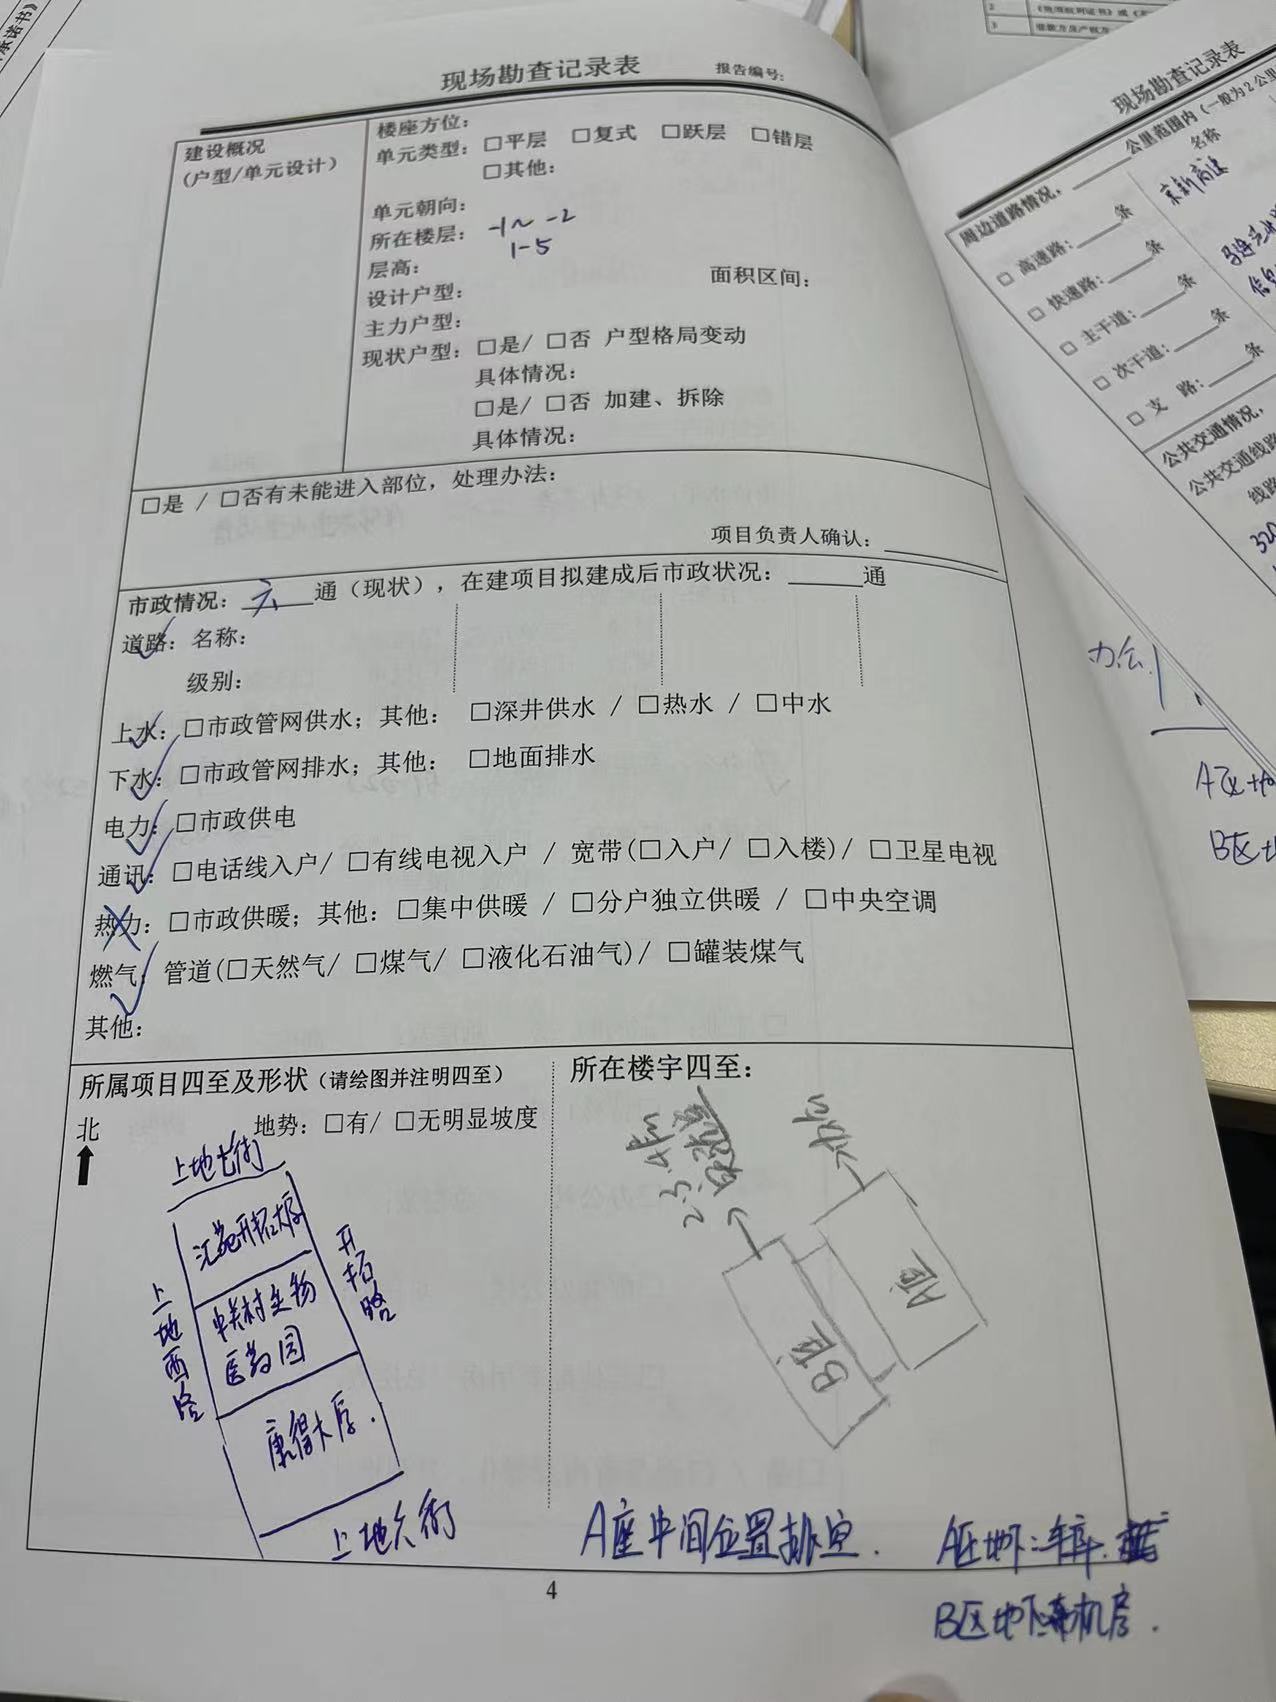 现场勘查记录表
报告编号:
建设概况
(户型/单元设计)
楼座方位:
单元类型: □平层 □复式 □跃层 □错层
□其他:
单元朝向:
所在楼层: -1~-2
1-5
层高:
设计户型: 面积区间:
主力户型:
现状户型: □是/ □否 户型格局变动
具体情况:
□是/ □否 加建、拆除
具体情况:
□是 / □否有未能进入部位，处理办法:
项目负责人确认:
市政情况: 六 通（现状），在建项目拟建成后市政状况: 通
道路: 名称:
级别:
上水: □市政管网供水；其他: □深井供水 / □热水 / □中水
下水: □市政管网排水；其他: □地面排水
电力: □市政供电
通讯: □电话线入户/ □有线电视入户 / 宽带(□入户/ □入楼)/ □卫星电视
热力: □市政供暖；其他: □集中供暖 / □分户独立供暖 / □中央空调
燃气: 管道(□天然气/ □煤气/ □液化石油气)/ □罐装煤气
其他:
所属项目四至及形状（请绘图并注明四至）
北 地势: □有/ □无明显坡度
上地七街
汇苑开拓大厦
中关村生物
医药园
康得大厦.
上地西路
开拓路
上地六街
所在楼宇四至:
A座
B座
A座中间位置挑空.
A区地下:车库.
B区地下:
机房.
4
现场勘查记录表
公里范围内（一般为2公里
周边道路情况，
名称
□ 高速路: 条
京新高速
□ 快速路: 条
□ 主干道: 条
□ 次干道: 条
□ 支 路: 条
公共交通情况，
公共交通线路
线路
320
办公
A区
B区
承诺书》
2
3